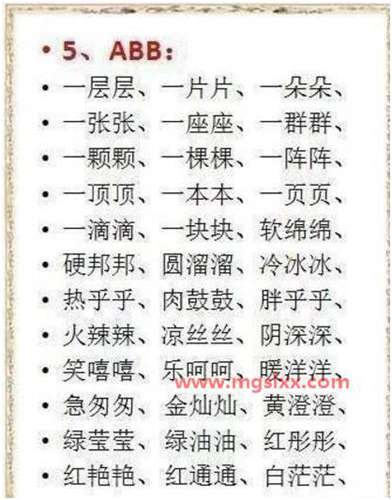 • 5、ABB：
• 一层层、一片片、一朵朵、
• 一张张、一座座、一群群、
• 一颗颗、一棵棵、一阵阵、
• 一顶顶、一本本、一页页、
• 一滴滴、一块块、软绵绵、
• 硬邦邦、圆溜溜、冷冰冰、
• 热乎乎、肉鼓鼓、胖乎乎、
• 火辣辣、凉丝丝、阴深深、
• 笑嘻嘻、乐呵呵、暖洋洋、
www.mgslxx.com
• 急匆匆、金灿灿、黄澄澄、
• 绿莹莹、绿油油、红彤彤、
• 红艳艳、红通通、白茫茫、